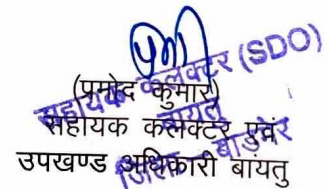 (प्रमोद कुमार)
सहायक कलक्टर एवं
उपखण्ड अधिकारी बायतु
सहायक कलक्टर (SDO)
जिला बाड़मेर